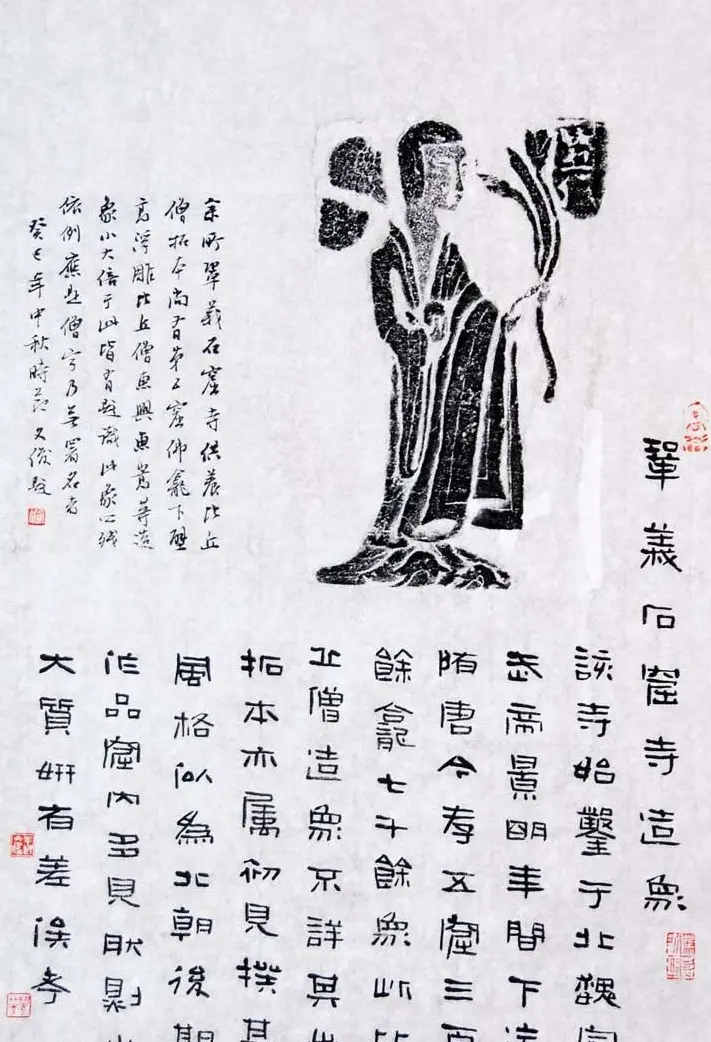 鞏義石窟寺造象
該寺始鑿于北魏宣
武帝景明年間下
隋唐今存五窟三百
餘龕七千餘象此比
丘僧造象不詳其出
拓本亦属初見
風格似為北朝後期
作品窟内多見
大質妍有差俟考
余所鞏義石窟寺供養比丘
僧拓本尚有第五窟佛龕下壁
高浮雕比丘僧惠興惠嵩等造
象小大倍于此皆有題識此象殘
依例應是僧乃無署名者
癸巳年中秋時節文俊題